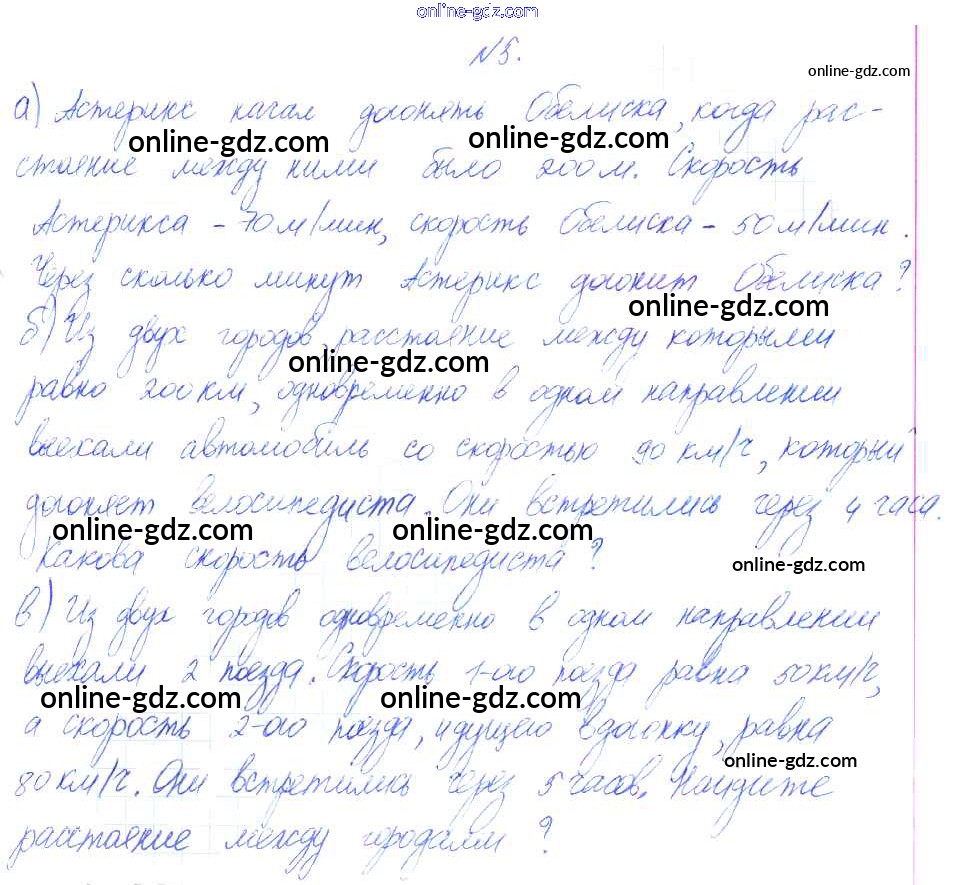 online-gdz.com
№5.
online-gdz.com
а) Астерикс начал догонять Обелиска, когда рас-
online-gdz.com online-gdz.com
стояние между ними было 200 м. Скорость
Астерикса - 70 м/мин, скорость Обелиска - 50 м/мин.
Через сколько минут Астерикс догонит Обелиска?
online-gdz.com
б) Из двух городов, расстояние между которыми
online-gdz.com
равно 200 км, одновременно в одном направлении
выехали автомобиль со скоростью 90 км/ч, который
догоняет велосипедиста. Они встретились через 4 часа.
online-gdz.com online-gdz.com
Какова скорость велосипедиста?
online-gdz.com
в) Из двух городов одновременно в одном направлении
выехали 2 поезда. Скорость 1-ого поезда равна 50 км/ч,
online-gdz.com online-gdz.com
а скорость 2-ого поезда, идущего вдогонку, равна
online-gdz.com
80 км/ч. Они встретились через 5 часов. Найдите
расстояние между городами?